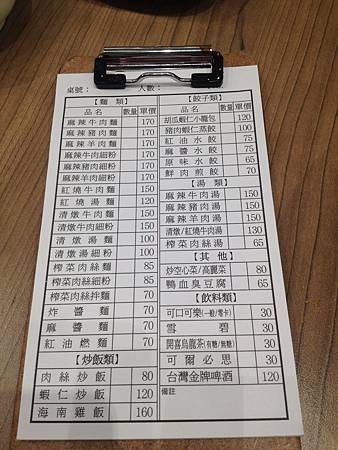 桌號： 人數：
【麵 類】 數量 單價
品名
麻辣牛肉麵 170
麻辣豬肉麵 170
麻辣羊肉麵 170
麻辣牛肉細粉 170
麻辣豬肉細粉 170
麻辣羊肉細粉 170
紅燒牛肉麵 150
紅燒湯麵 120
清燉牛肉麵 150
清燉牛肉細粉 150
清燉湯麵 100
清燉湯細粉 100
榨菜肉絲麵 85
榨菜肉絲細粉 85
榨菜肉絲拌麵 70
炸醬麵 70
麻醬麵 70
紅油燃麵 70
【炒飯類】
肉絲炒飯 80
蝦仁炒飯 120
海南雞飯 160
【餃子類】
品名 數量 單價
胡瓜蝦仁小籠包 120
豬肉蝦仁蒸餃 100
紅油水餃 75
麻醬水餃 75
原味水餃 65
鮮肉煎餃 70
【湯 類】
麻辣牛肉湯 150
麻辣豬肉湯 150
麻辣羊肉湯 150
清燉/紅燒牛肉湯 130
榨菜肉絲湯 65
【其 他】
炒空心菜/高麗菜 80
鴨血臭豆腐 65
【飲料類】
可口可樂(一般/零卡) 30
雪碧 30
開喜烏龍茶(有糖/無糖) 30
可爾必思 30
台灣金牌啤酒 120
備註